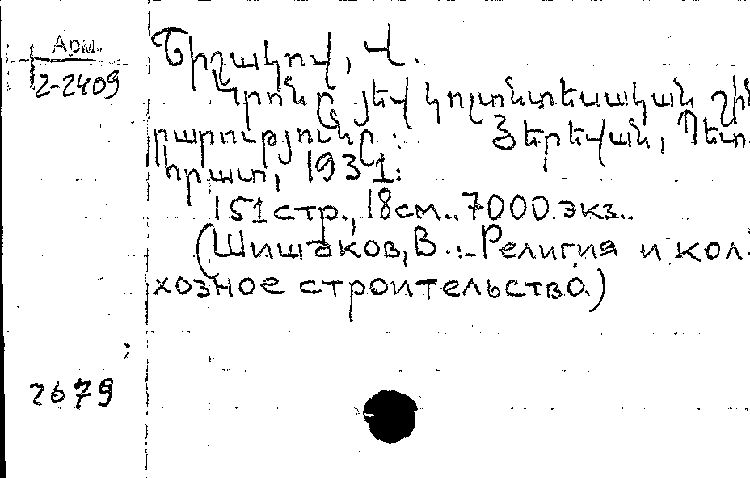 Арм.
2-2409
Շիշակով, Վ.
Կրոնը յեվ կոլտնտեսական շին
րարությունը: Յերեվան, Պետ
հրատ, 1931:
151 стр., 18 см.. 7000 экз..
(Шишаков, В.:- Религия и кол
хозное строительство.)
2679